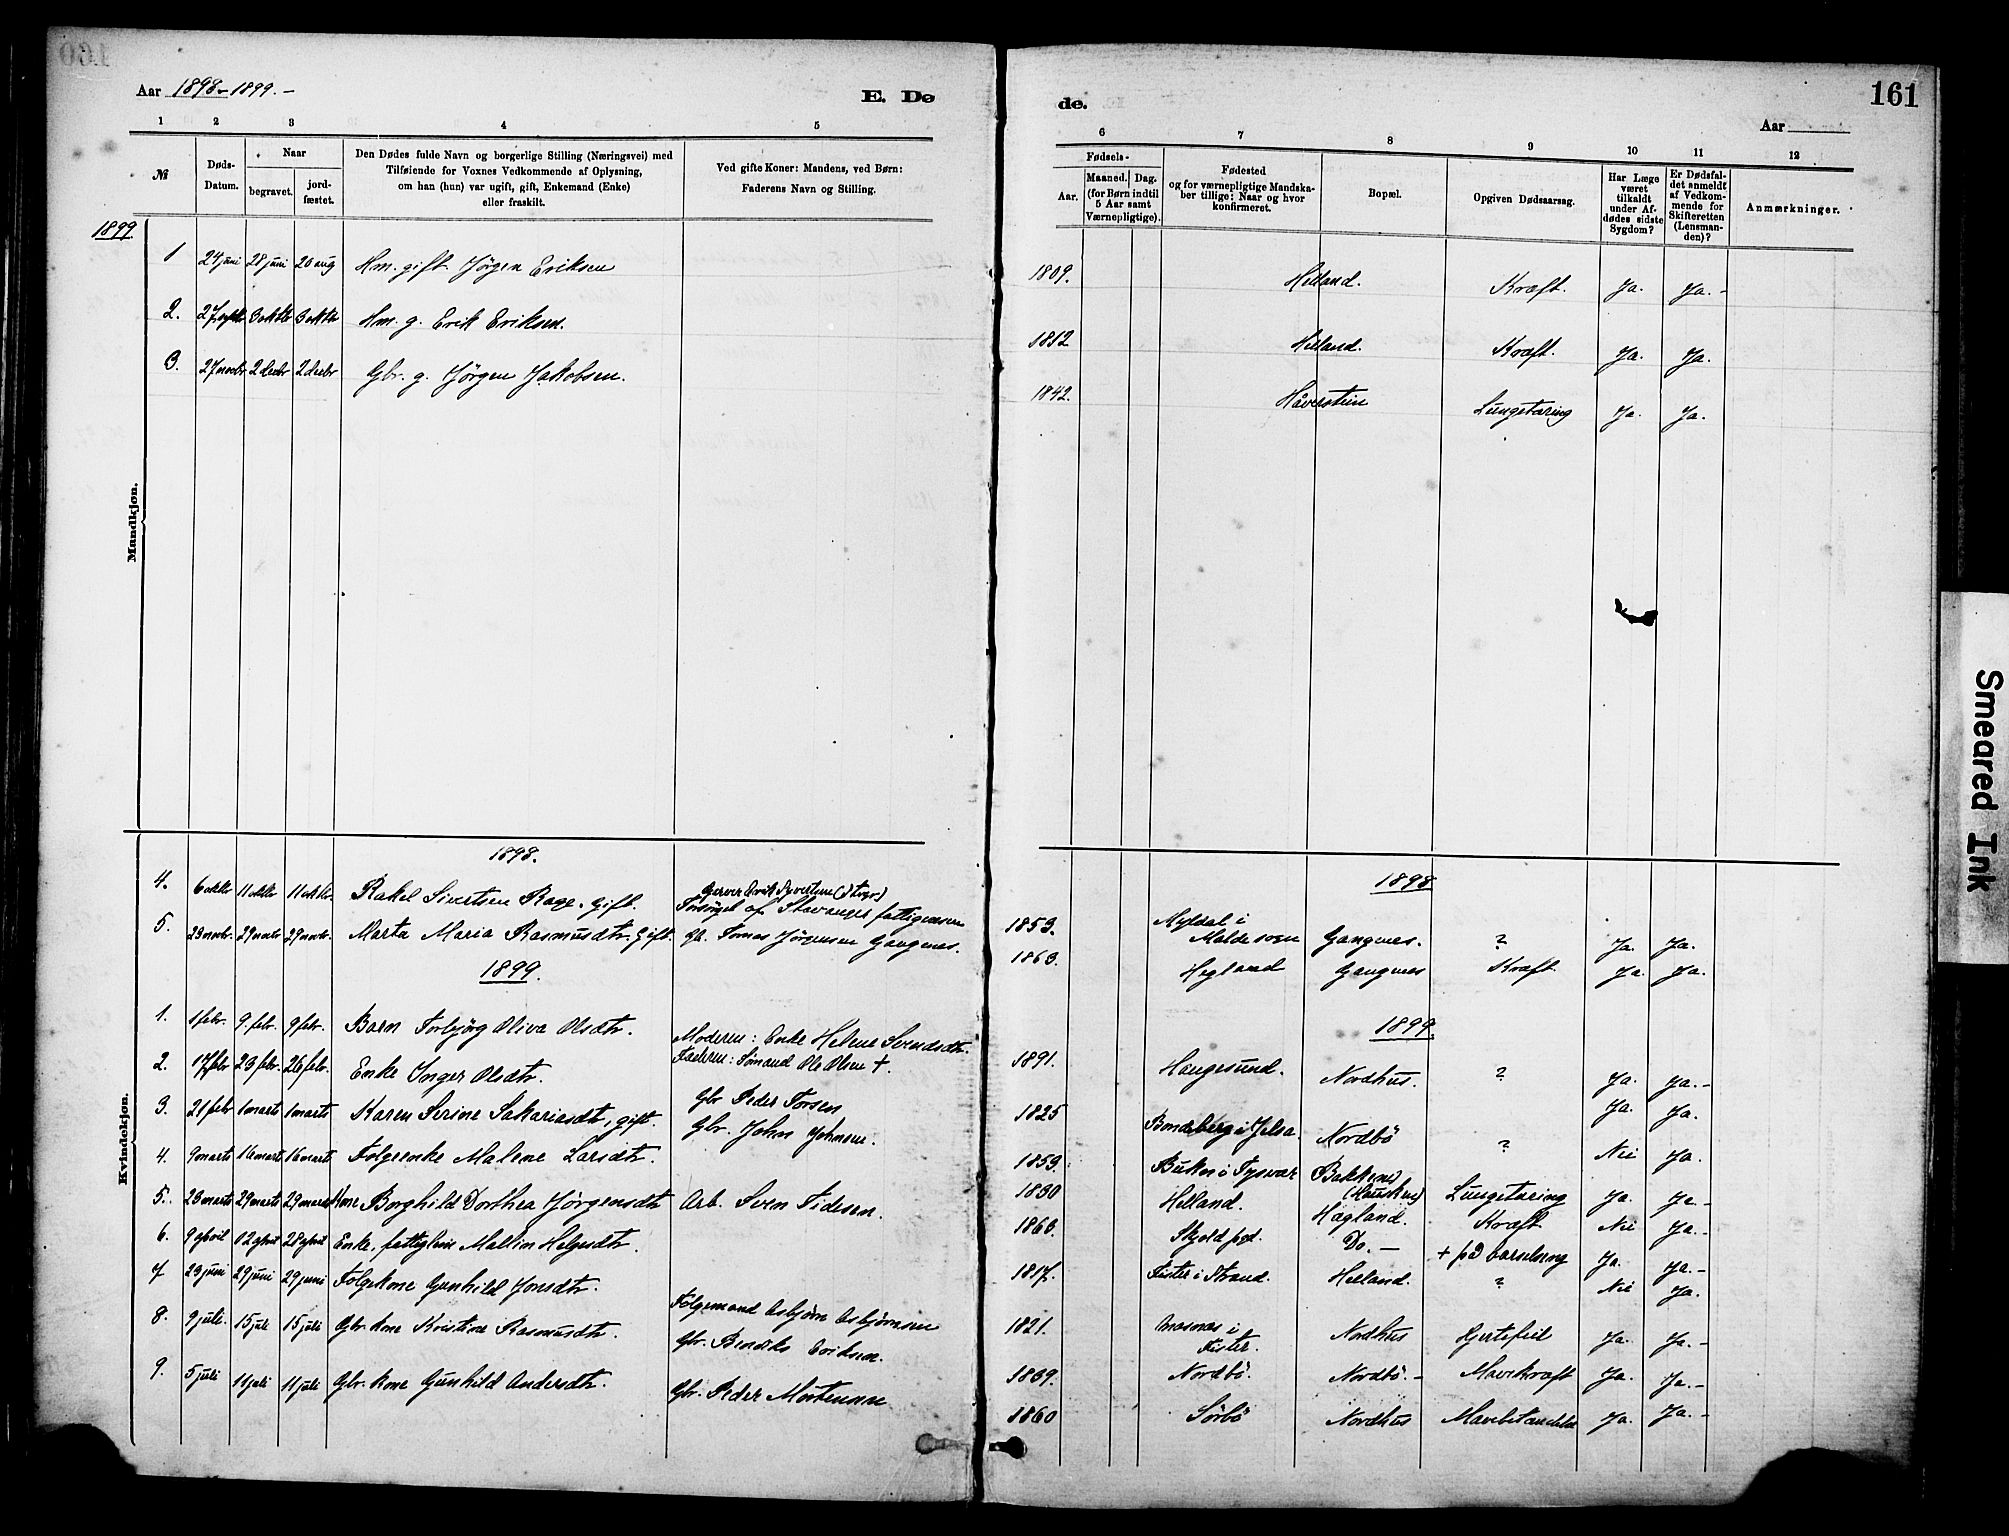 160
161
Aar 1898-1899.-
E. Dø
de.
Aar
1 2 3 4 5
6 7 8 9 10 11 12
№
Døds-
Datum.
Naar
begravet.
jord-
fæstet.
Den Dødes fulde Navn og borgerlige Stilling (Næringsvei) med
Tilføiende for Voxnes Vedkommende af Oplysning,
om han (hun) var ugift, gift, Enkemand (Enke)
eller fraskilt.
Ved gifte Koner: Mandens, ved Børn:
Faderens Navn og Stilling.
Fødsels-
Aar.
Maaned. Dag.
(for Børn indtil
5 Aar samt
Værnepligtige).
Fødested
og for værnepligtige Mandska-
ber tillige: Naar og hvor
konfirmeret.
Bopæl.
Opgiven Dødsaarsag.
Har Læge
været
tilkaldt
under Af-
dødes sidste
Sygdom?
Er Dødsfal-
det anmeldt
af Vedkom-
mende for
Skifteretten
(Lensman-
den)?
Anmærkninger.
1899
Mandkjøn.
1 24 juni 28 juni 20 aug Hm. gift Jørgen Eriksen 1809. Helland. Kræft. Ja. Ja.-
2. 27 septbr 3 oktbr 3 oktbr Hm. g. Erik Eriksen. 1812 Helland. Kræft. Ja. Ja.
3. 27 novbr 2 decbr 2 decbr Gbr. g. Jørgen Jakobsen. 1842. Håverstein Lungetæring Ja. Ja.
Kvindekjøn.
1898.
1898
4. 6 oktbr 11 oktbr 11 oktbr. Rakel Sivertsen Rage. gift. Garver Erik Syvertsen (Stvgr)
Forsørget af Stavanger fattigvæsen 1853. Mydal i
Malde sogn Gangnes. ? Ja. Ja.
5. 23 novbr 29 novbr 29 novbr. Marta Maria Rasmusdtr. Gift. Gb. Tomas Jørgensen Gangnes. 1863. Hegland Gangnes Kræft Ja Ja.
1899.
1899.
1. 1 febr. 9. febr. 9 febr. Barn Torbjørg Oliva Olsdtr. Moderen: Enke Helene Svendsdtr.
Faderen: Sømand Ole Olsen †. 1891. Haugesund. Nordhus. ? Ja. Ja.-
2. 17 febr 23 febr. 26 febr. Enke Inger Olsdtr. 1825 Bondeberg i Jelsa. Nordbö ? Ja. Ja.
3. 21 febr 1 marts 1 marts Karen Serine Sakariasdtr, gift. Gbr Peder Torsen
Gbr. John Johnsen. 1859. Buken i Tysvær Bakkene
(Hausken) Lungetæring Nei Ja.
4. 9 marts 16 marts 16 marts Folgeenke Malene Larsdtr. 1830 Helland. Hægland. Kræft Ja. Ja.-
5. 23 marts 29 marts 29 marts Kone Borghild Dorthea Jørgensdtr Arb. Sven Tidesen. 1863. Skjold pgd. Do.- + på barselseng Nei Ja.-
6. 9 april 12 april 28 april Enke, fattiglem Mallin Helgesdtr. 1817. Fister i Strand. Helland. ? Ja. Ja.-
7 23 juni 29 juni 29 juni Folgekone Gunhild Jonsdtr. Folgemand Asbjørn Asbjørnsen 1821. Mosnæs i
Fister. Nordhus Hjertefeil Nei Ja.
8. 9 juli. 15 juli 15 juli Gbr. kone Kristine Rasmusdtr. Gbr. Bendiks Eriksen. 1839. Nordbö. Nordbö.- Mavekræft Ja. Ja.-
9. 5 juli 11 juli 11 juli Gbr. kone Gunhild Andersdtr. Gbr. Peder Mortensen 1860 Sörbö Nordhus Ja. Ja.-
Ja. Ja.-
Smeared Ink